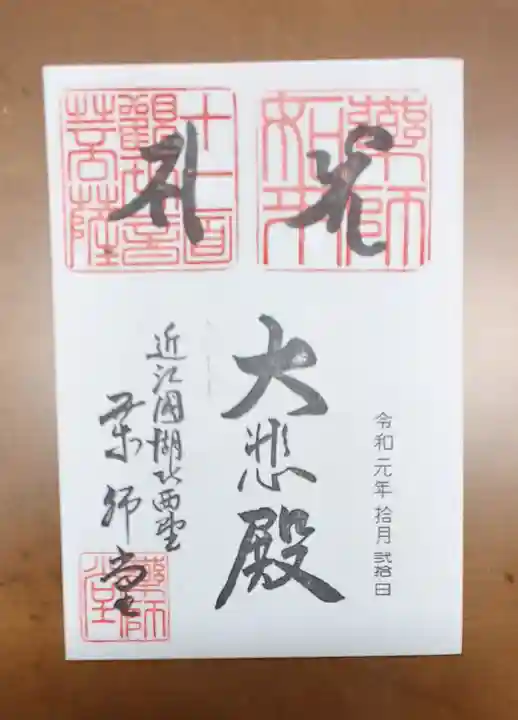 薬師如来
十一面観世音菩薩
光
礼
令和元年 拾月 弐拾日
大悲殿
近江国湖北西野
薬師堂
薬師堂